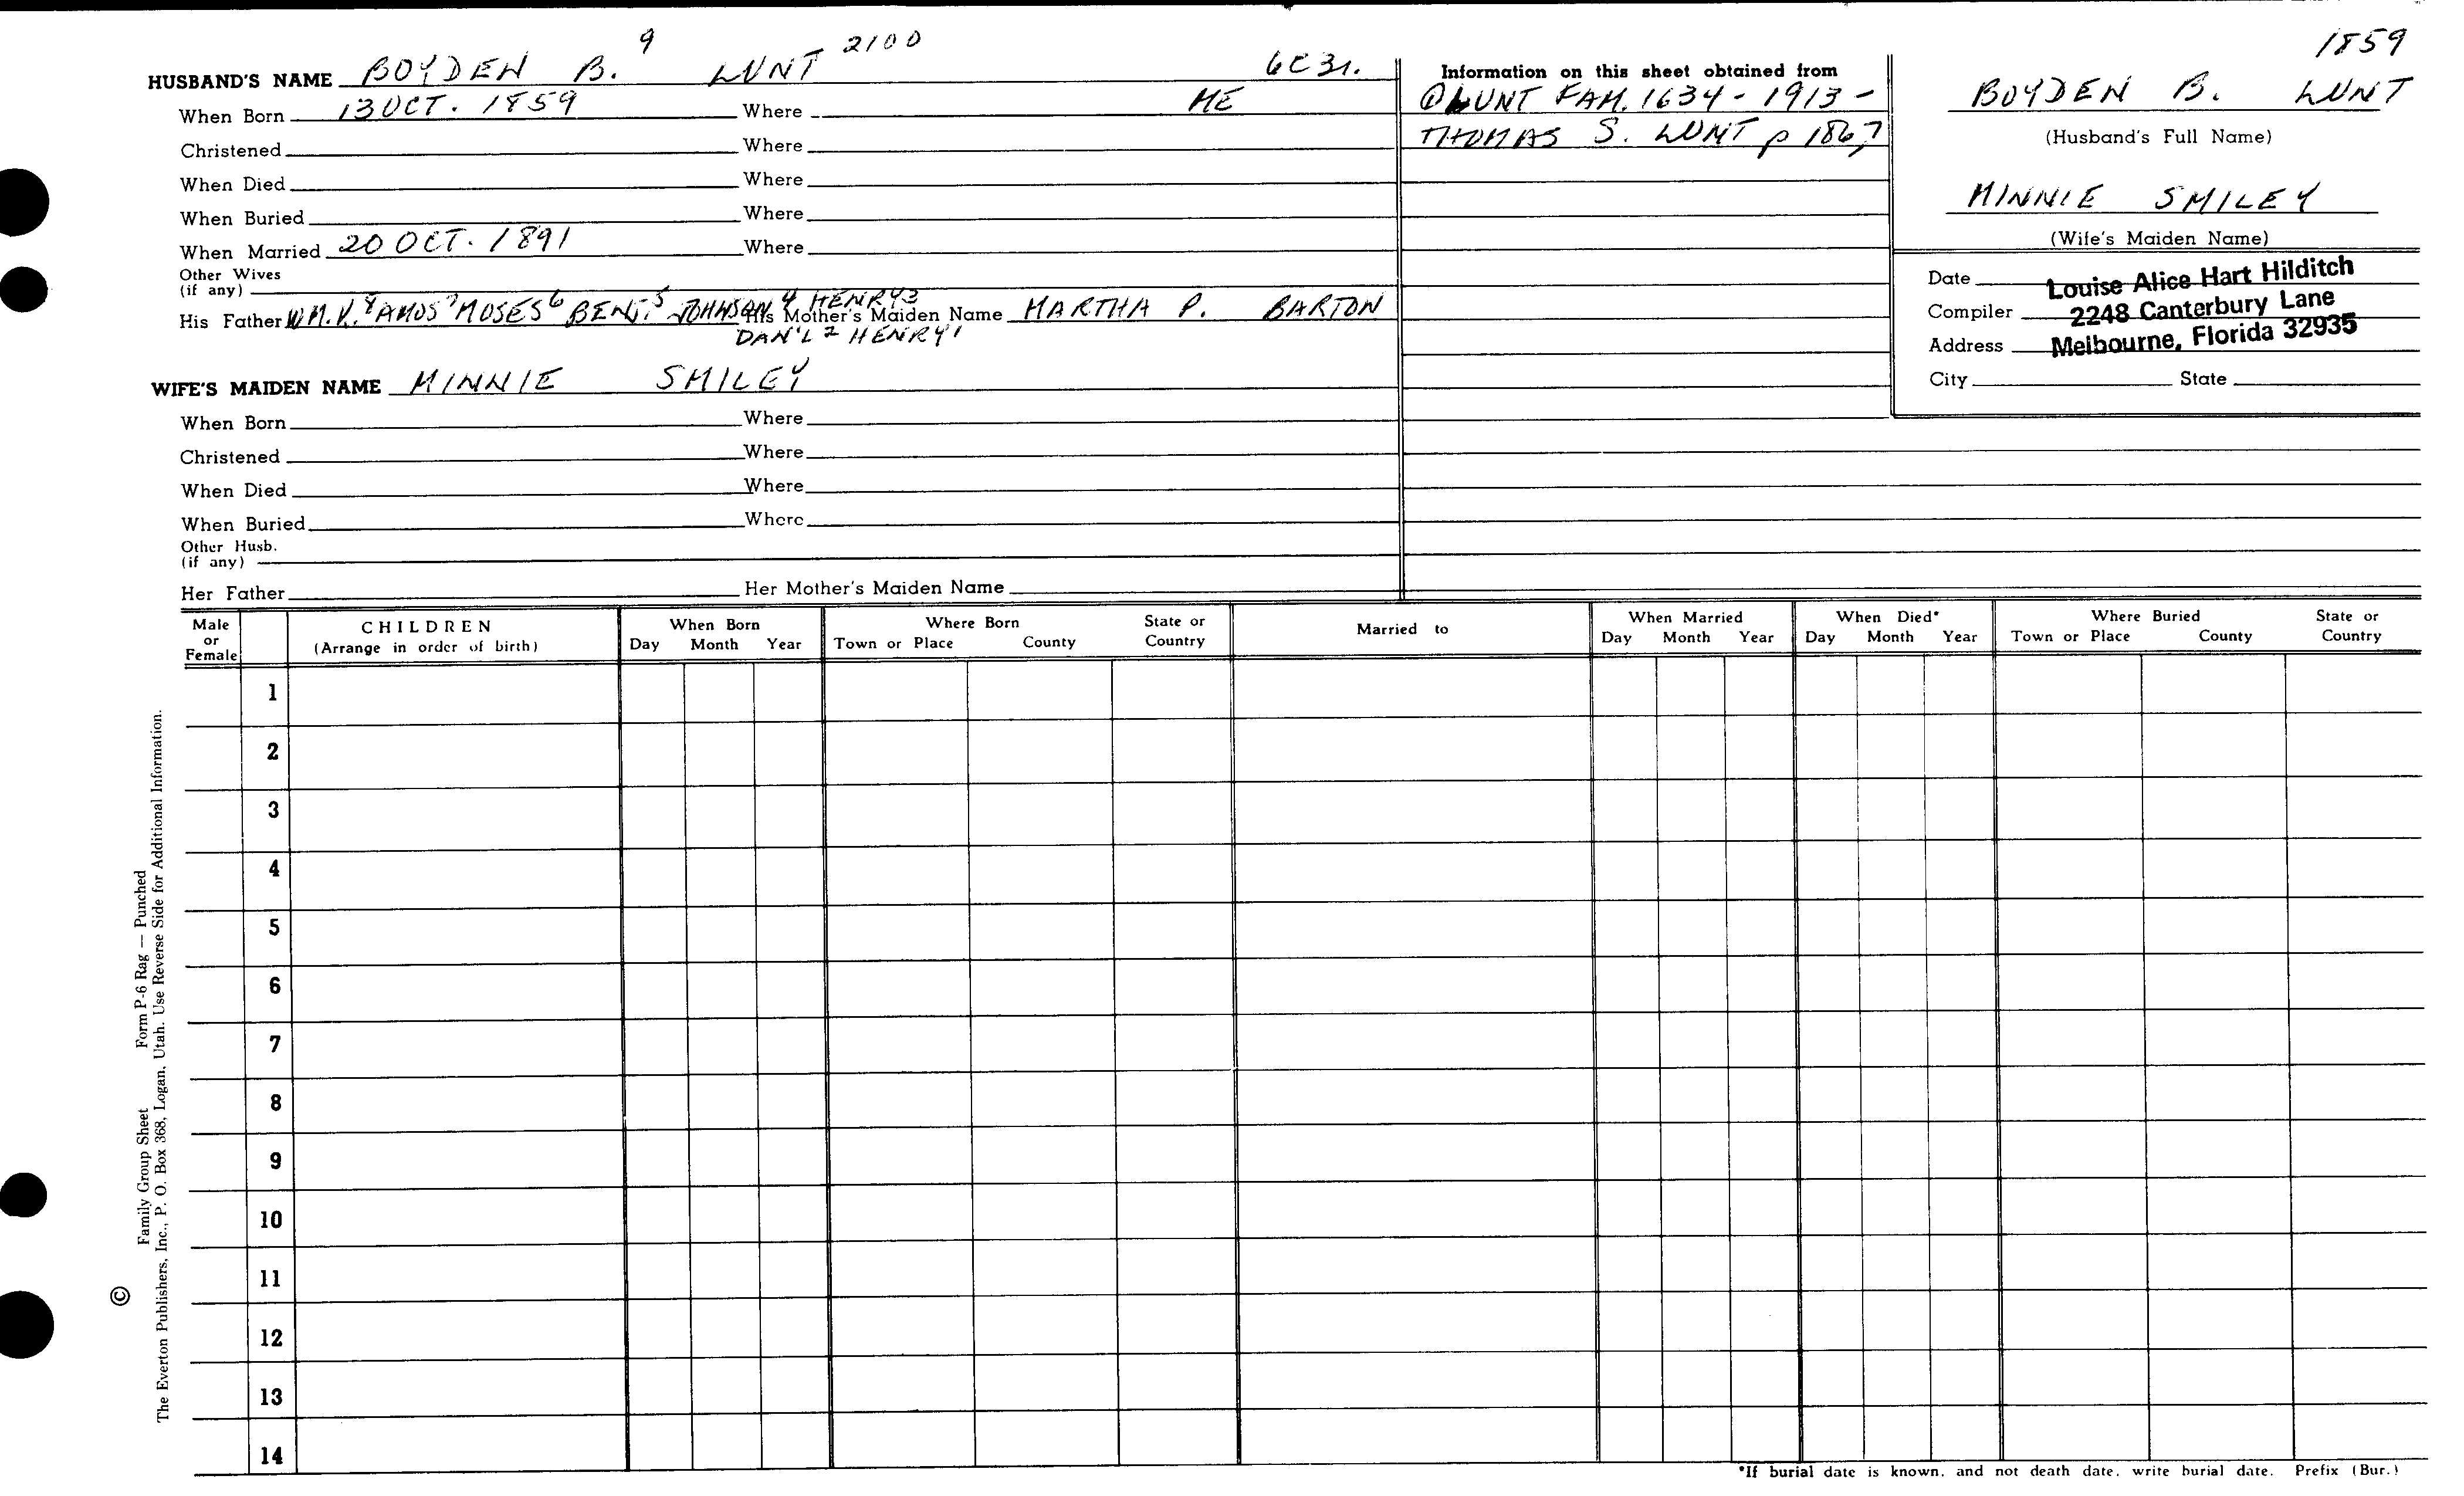 HUSBAND'S NAME BOYDEN B. 9 LUNT 2100 6C31.
When Born 13 OCT. 1859 Where ME
Christened Where
When Died Where
When Buried Where
When Married 20 OCT. 1891 Where
Other Wives
(if any)
His Father WM. V.8 AMOS7 MOSES6 BENJ.5 JOHNSON4 HENRY3 His Mother's Maiden Name MARTHA P. BARTON
DAN'L2 HENRY1
WIFE'S MAIDEN NAME MINNIE SMILEY
When Born Where
Christened Where
When Died Where
When Buried Where
Other Husb.
(if any)
Her Father Her Mother's Maiden Name
Information on this sheet obtained from
① LUNT FAM. 1634 - 1913 -
THOMAS S. LUNT p 186,7
1859
BOYDEN B. LUNT
(Husband's Full Name)
MINNIE SMILEY
(Wife's Maiden Name)
Date Louise Alice Hart Hilditch
Compiler 2248 Canterbury Lane
Address Melbourne, Florida 32935
City State
Male or Female
CHILDREN
(Arrange in order of birth)
When Born
Day Month Year
Where Born
Town or Place County State or Country
Married to
When Married
Day Month Year
When Died*
Day Month Year
Where Buried
Town or Place County State or Country
1
2
3
4
5
6
7
8
9
10
11
12
13
14
*If burial date is known, and not death date, write burial date. Prefix (Bur.)
© Family Group Sheet Form P-6 Rag — Punched
The Everton Publishers, Inc., P. O. Box 368, Logan, Utah. Use Reverse Side for Additional Information.